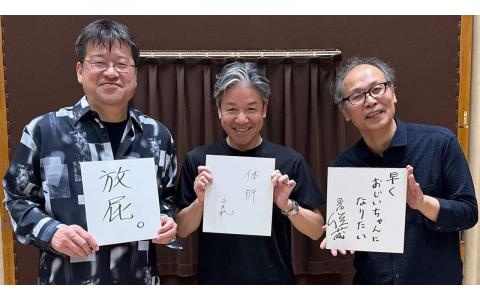 放
屁。
体
肝
早く
おじいちゃんに
なりたい